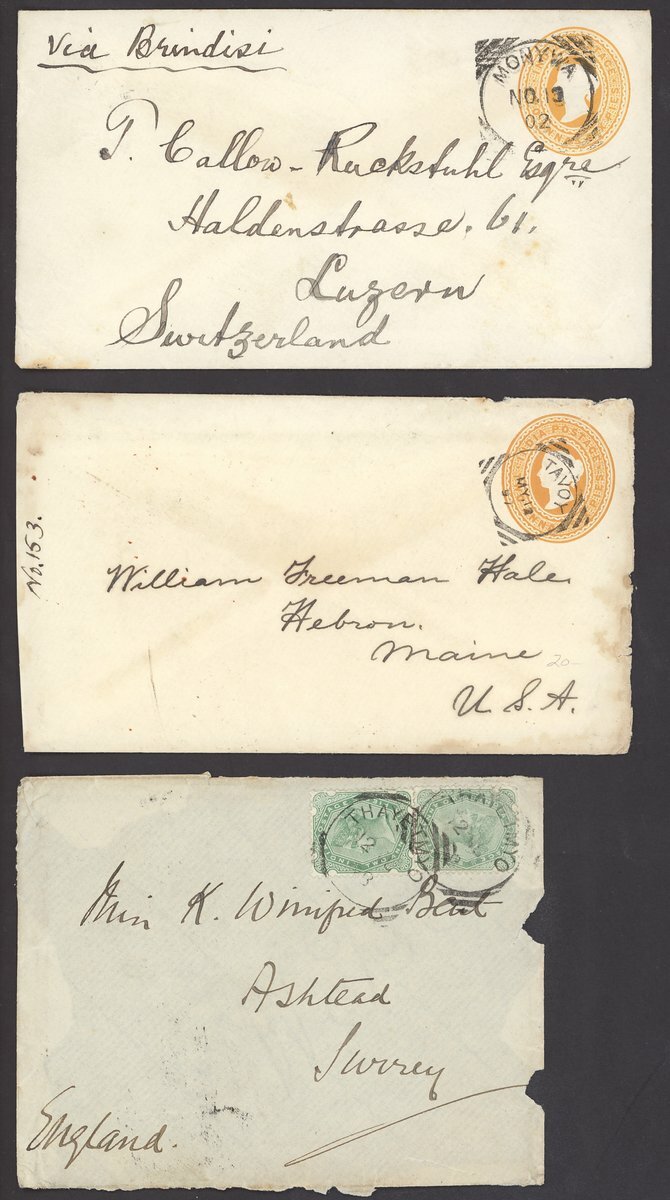 Via Brindisi
MONYWA
NO. 13
02
T. Callow-Ruckstuhl Esqre
Haldenstrasse. 61.
Luzern
Switzerland
INDIA POSTAGE
TAVOY
MY
97
No. 153.
William Freeman Hale.
Hebron.
Maine
20-
U. S. A.
THAYETMYO
THAYETMYO
Miss K. Winifred Bent
Ashtead
Surrey
England.